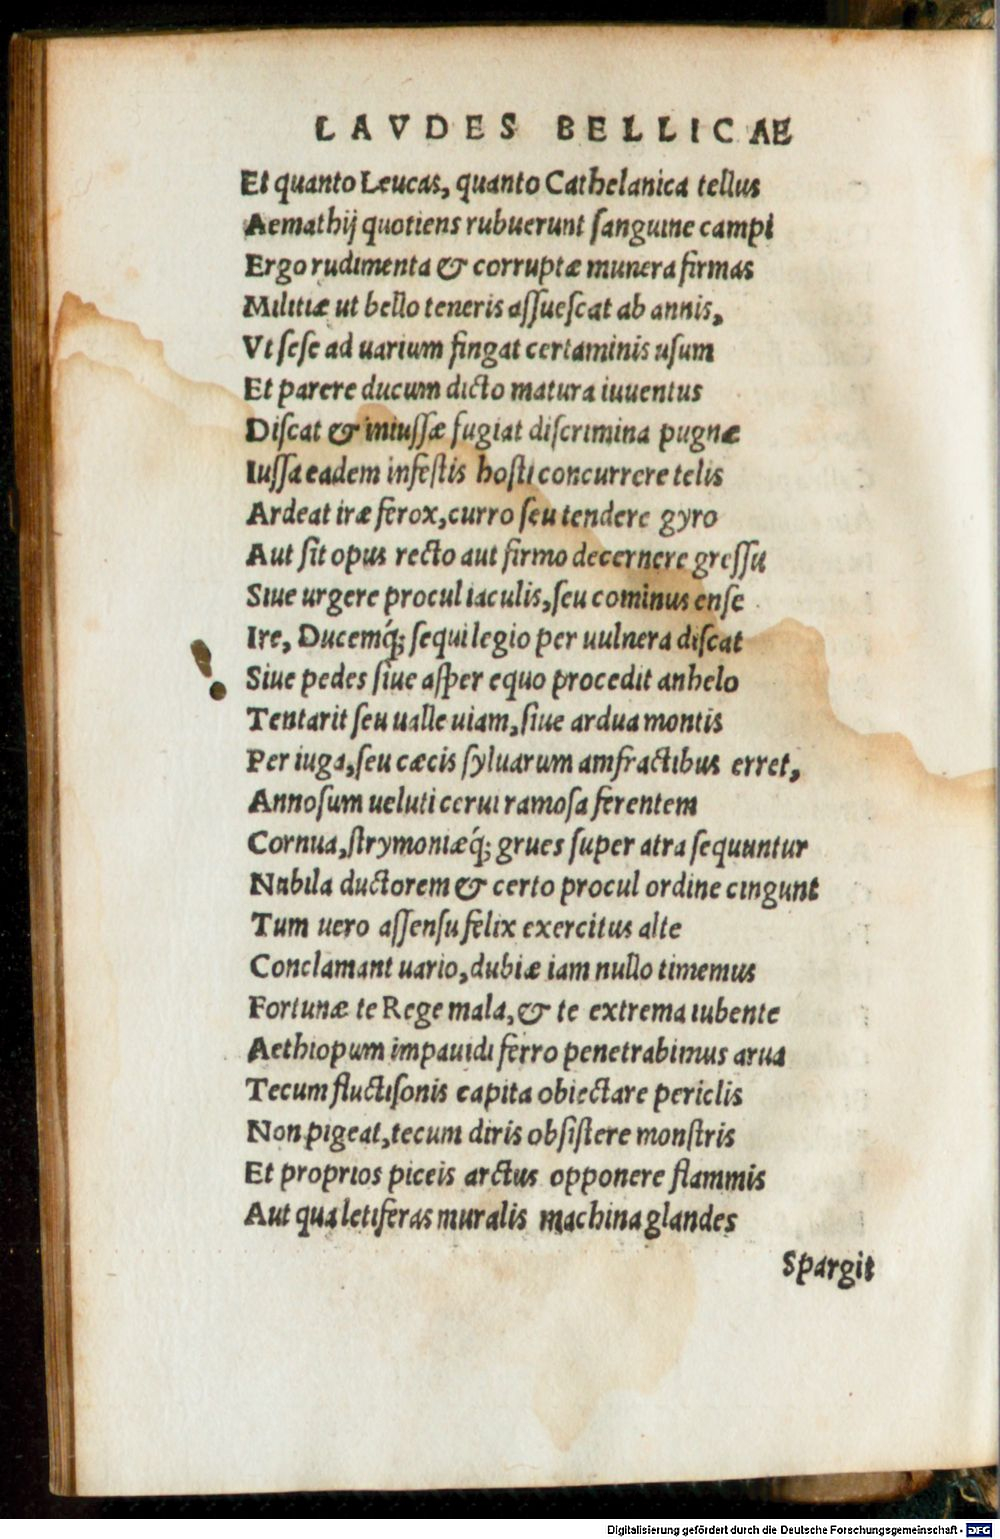 LAVDES BELLICAE
Et quanto Leucas, quanto Cathelanica tellus
Aemathij quotiens rubuerunt ſanguine campi
Ergo rudimenta & corruptæ munera firmas
Militiæ ut bello teneris aſſueſcat ab annis,
Vt ſeſe ad uarium fingat certaminis uſum
Et parere ducum dicto matura iuuentus
Diſcat & iniuſſæ fugiat diſcrimina pugnæ
Iuſſa eadem infeſtis hoſti concurrere telis
Ardeat iræ ferox, curro ſeu tendere gyro
Aut ſit opus recto aut firmo decernere greſſu
Siue urgere procul iaculis, ſeu cominus enſe
Ire, Ducemq́; ſequi legio per uulnera diſcat
Siue pedes ſiue aſper equo procedit anhelo
Tentarit ſeu ualle uiam, ſiue ardua montis
Per iuga, ſeu cæcis ſyluarum amfractibus erret,
Annoſum ueluti cerui ramoſa ferentem
Cornua, ſtrymoniæq́; grues ſuper atra ſequuntur
Nubila ductorem & certo procul ordine cingunt
Tum uero aſſenſu felix exercitus alte
Conclamant uario, dubiæ iam nullo timemus
Fortunæ te Rege mala, & te extrema iubente
Aethiopum impauidi ferro penetrabimus arua
Tecum fluctiſonis capita obiectare periclis
Non pigeat, tecum diris obſiſtere monſtris
Et proprios piceis arctus opponere flammis
Aut qua letiferas muralis machina glandes
Spargit
Digitalisierung gefördert durch die Deutsche Forschungsgemeinschaft - DFG